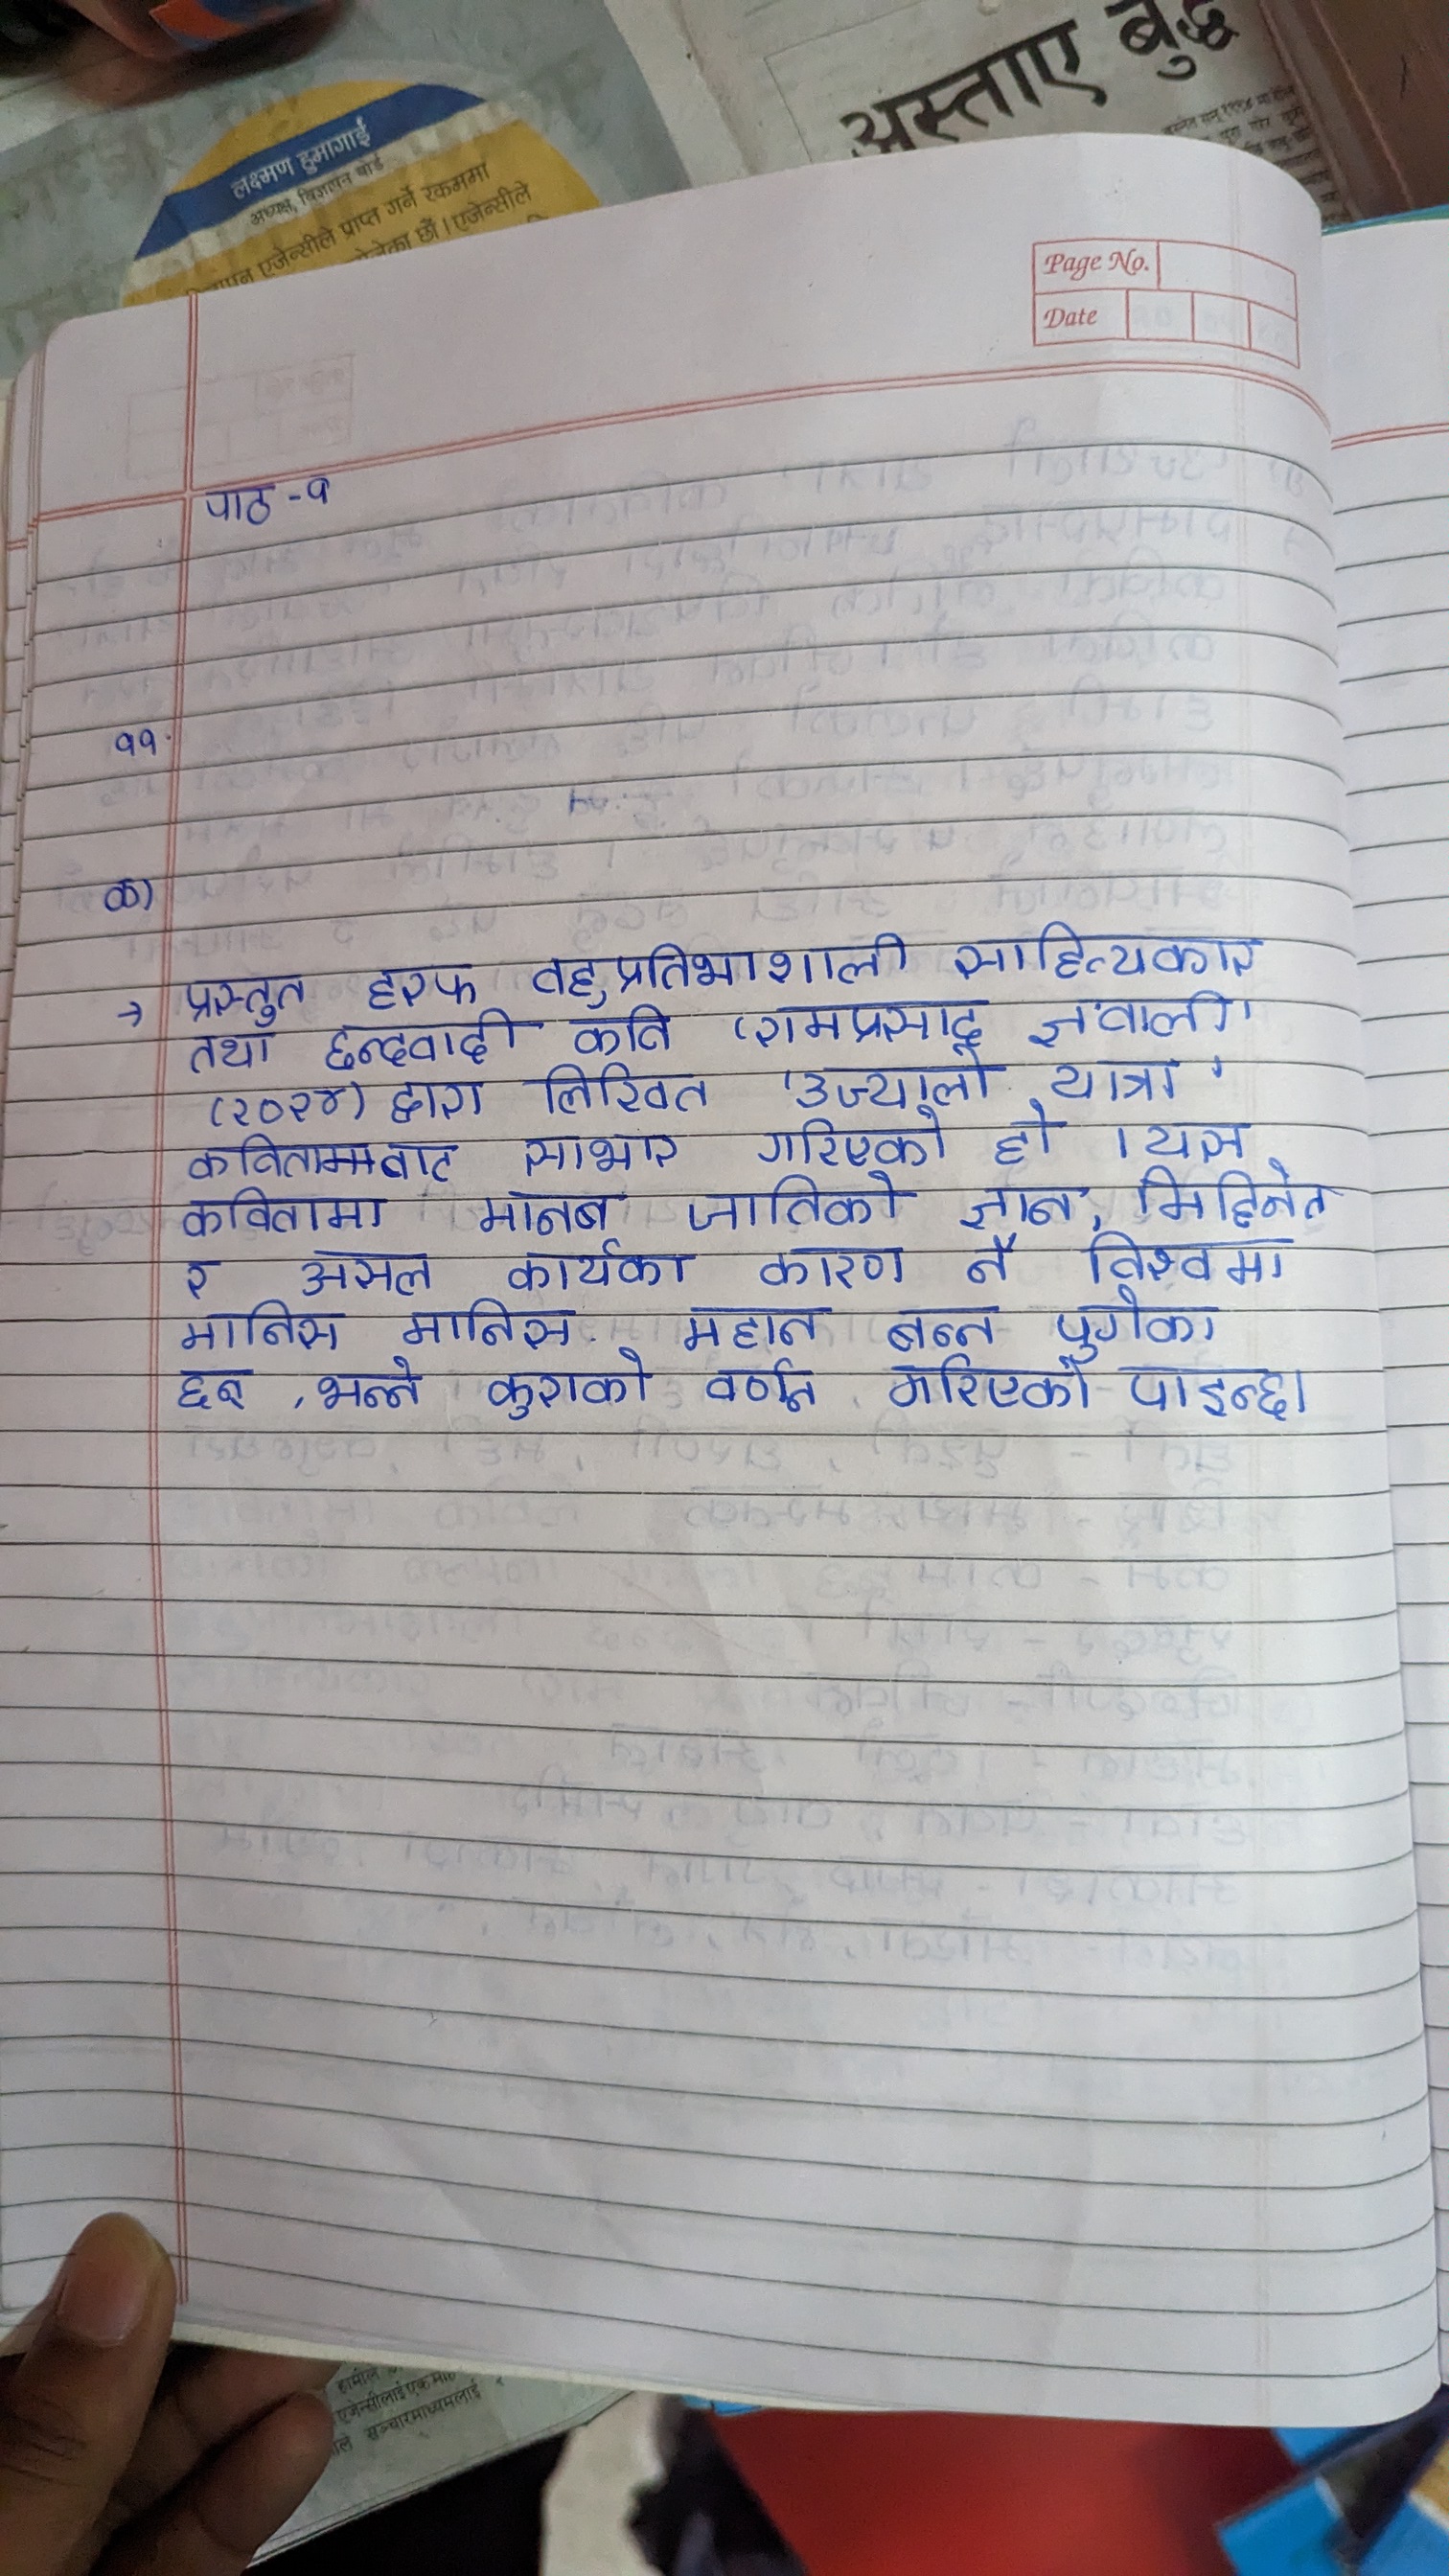 अस्ताए बुद्ध
लक्ष्मण हुमागाई
अध्यक्ष, विज्ञापन बोर्ड
एजेन्सीले प्राप्त गर्ने रकममा
छौं । एजेन्सीले
Page No.
Date
पाठ -१
११.
क)
→ प्रस्तुत हरफ बहुप्रतिभाशाली साहित्यकार
तथा छन्दवादी कवि (रामप्रसाद ज्ञवाली
(२०२४) द्वारा लिखित 'उज्यालो यात्रा'
कविताम्मबाट साभार गरिएको हो । यस
कवितामा मानब जातिको ज्ञान, मिहिनेत
र असल कार्यका कारण नै विश्वमा
मानिस मानिस महान बन्न पुगेका
छन् , भन्ने कुराको वर्णन गरिएको पाइन्छ।
हामीले
एजेन्सीलाई एकमा
सञ्चारमाध्यमलाई